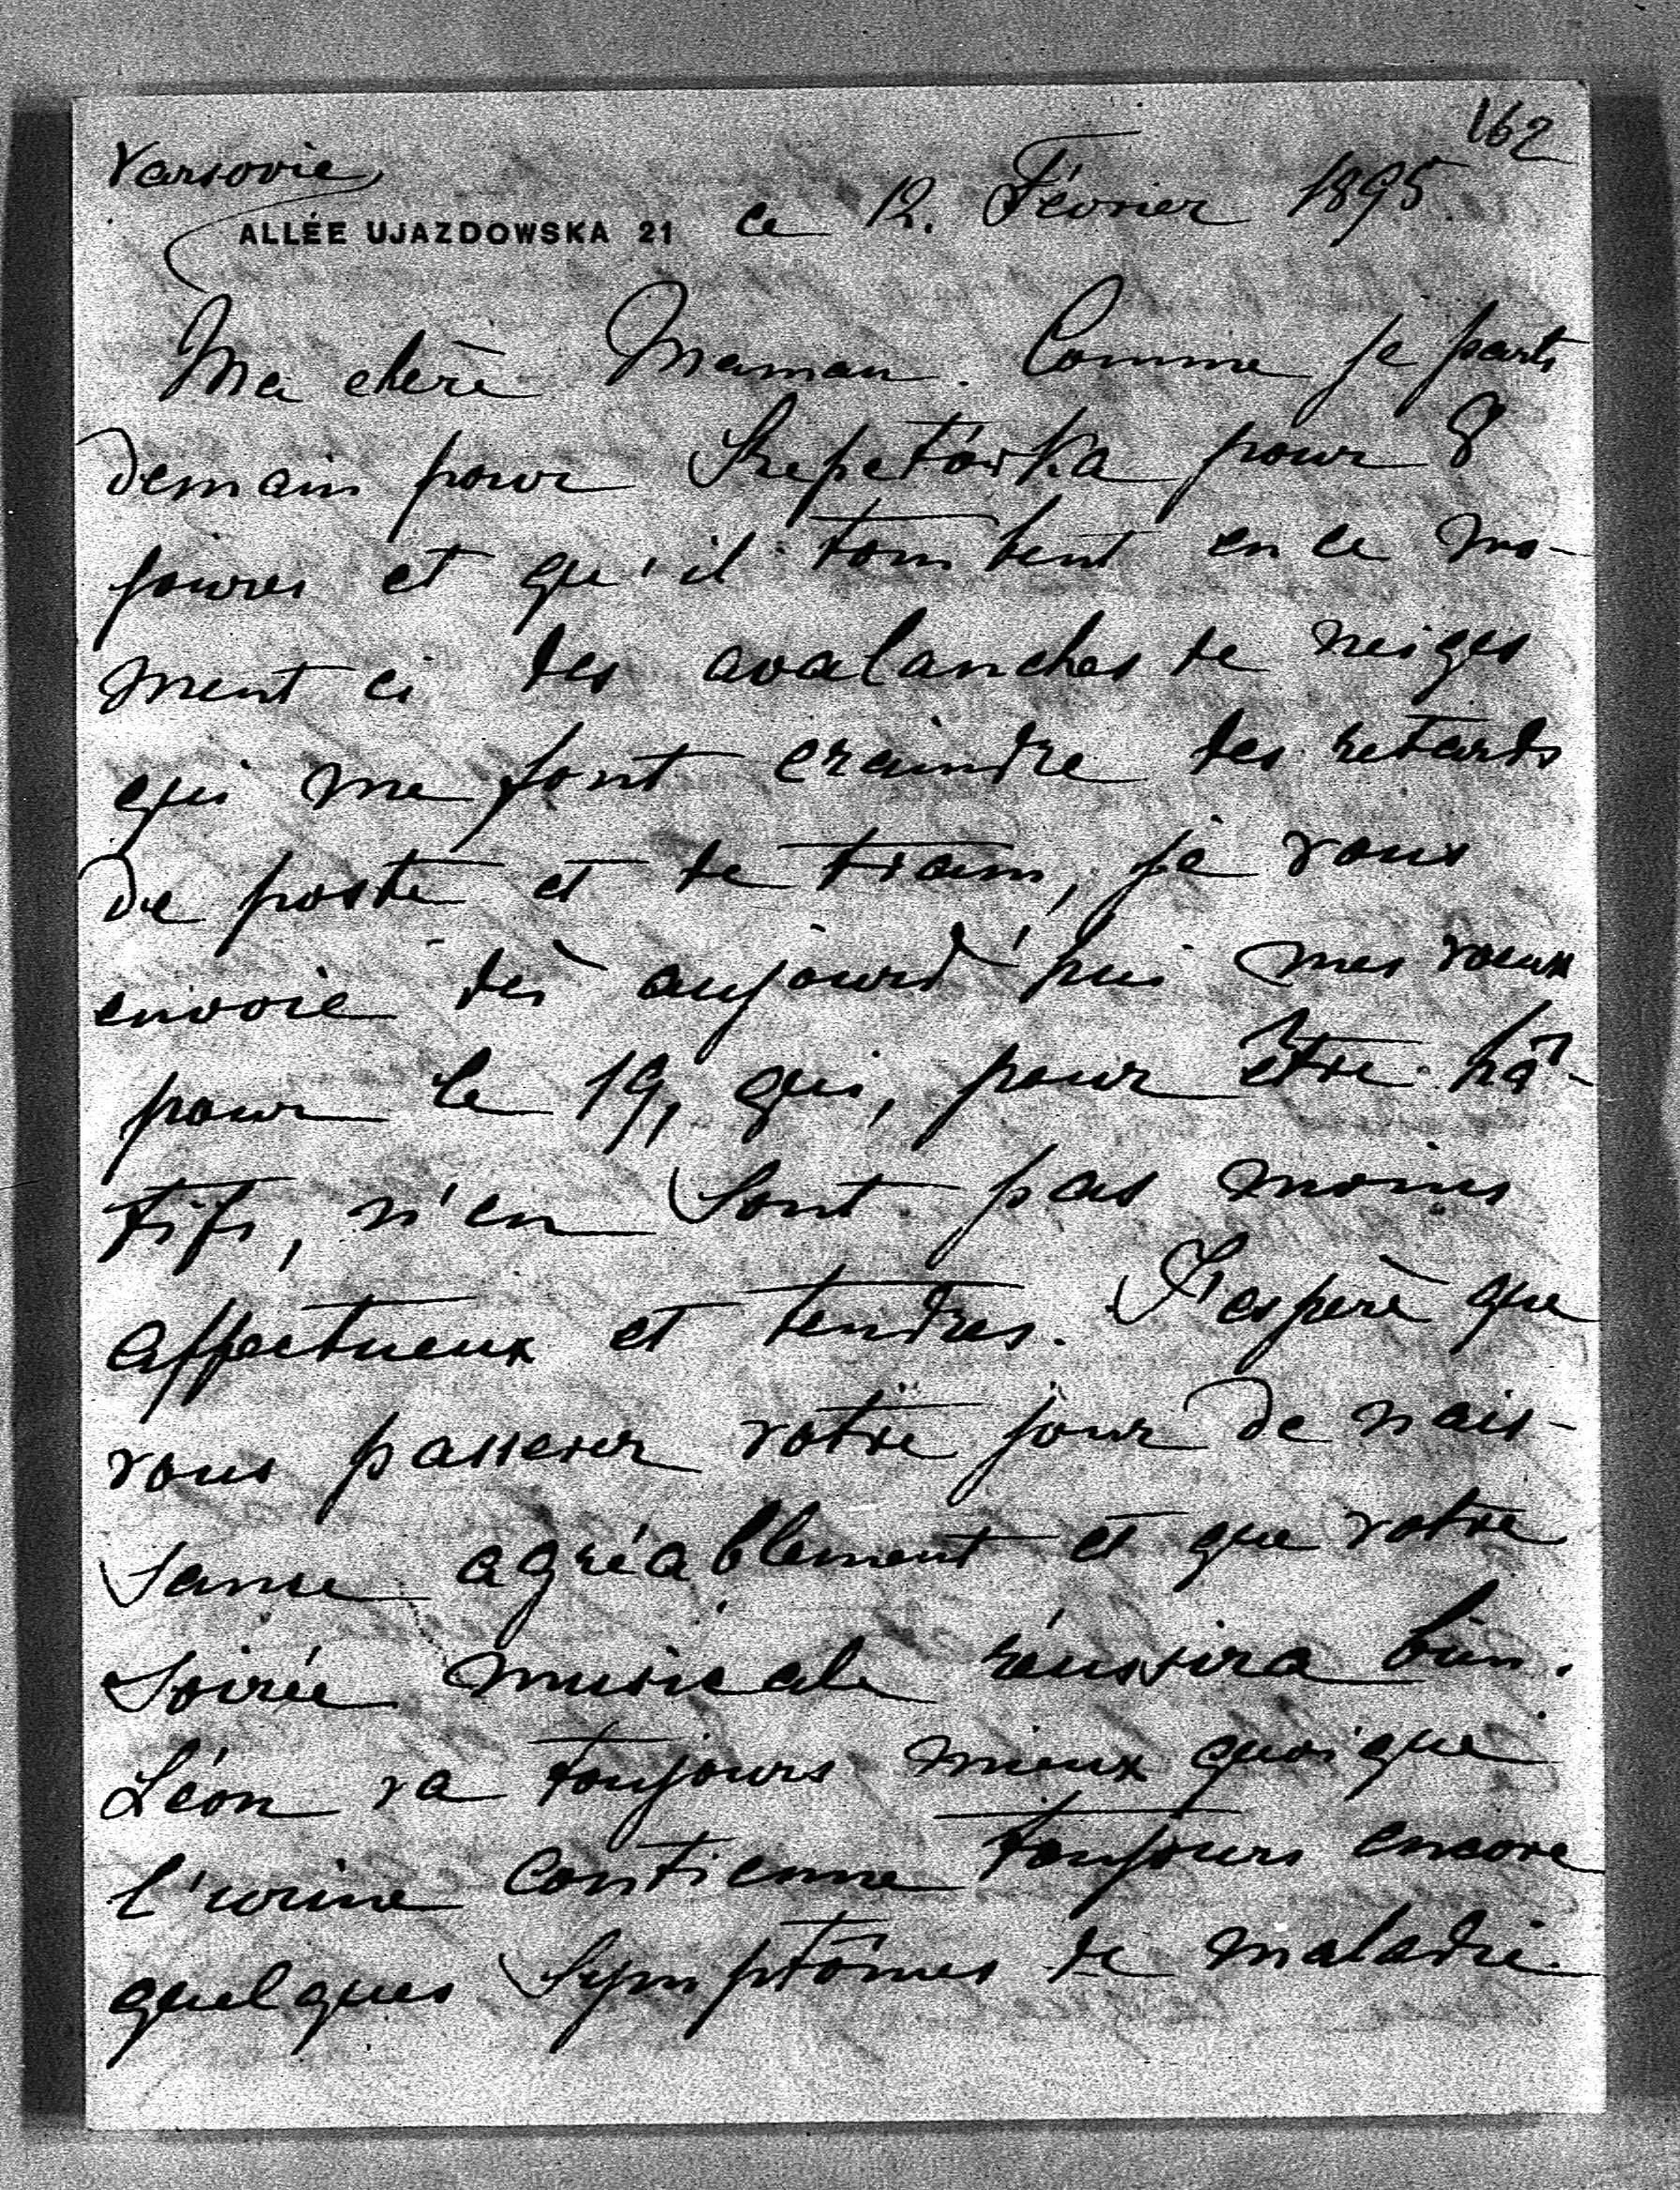 162
Varsovie
ALLÉE UJAZDOWSKA 21 ce 12. Février 1895.
Ma chère Maman. Comme je parts
demain pour Szepetówka pour 8
jours et qu'il tombent en ce mo-
ment ci des avalanches de neiges
qui me font craindre des retards
de poste et de train, je vous
envoie dès aujourd'hui mes vœux
pour le 19, qui, pour être hâ-
tifs, n'en sont pas moins
affectueux et tendres. J'espère que
vous passerer votre jour de nais-
sance agréablement et que votre
soirée musicale réussira bien.
Léon va toujours mieux quoique
l'urine contienne toujours encore
quelques symptômes de maladie.